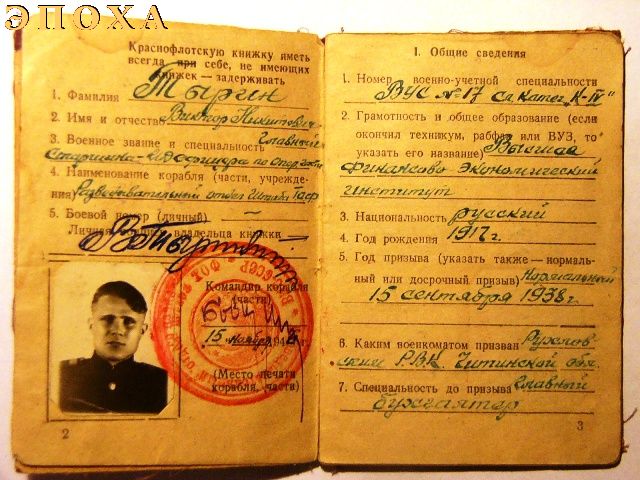 ЭПОХА
Краснофлотскую книжку иметь
всегда при себе, не имеющих
книжек — задерживать
1. Фамилия Тыргин
2. Имя и отчество Виктор Никитович
3. Военное звание и специальность Главный
Старшина
4. Наименование корабля (части, учрежде-
ния) Разведывательный отдел Штаба
5. Боевой номер (личный) —
Личная владельца книжки —
Командир корабля
(части)
15 Ноября 194
(Место печати
корабля, части)
2
I. Общие сведения
1. Номер военно-учетной специальности
ВУС № 17 К-IV"
2. Грамотность и общее образование (если
окончил техникум, рабфак или ВУЗ, то
указать его название) Высшее
Финансово Экономический
институт
3. Национальность русский
4. Год рождения 1917 г.
5. Год призыва (указать также — нормаль-
ный или досрочный призыв) Нормальный
15 сентября 1938 г
6. Каким военкоматом призван Рухлов-
ским РВК Читинской обл.
7. Специальность до призыва Главный
бухгалтер
3